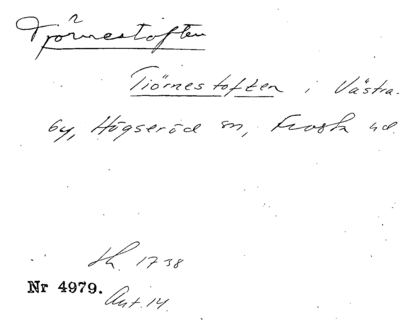 Tjörnestoften
Tiörnestoften i Västra-
by, Högseröd sn, Frosta hd.
sk. 1738
Nr 4979.
Ant. 14.